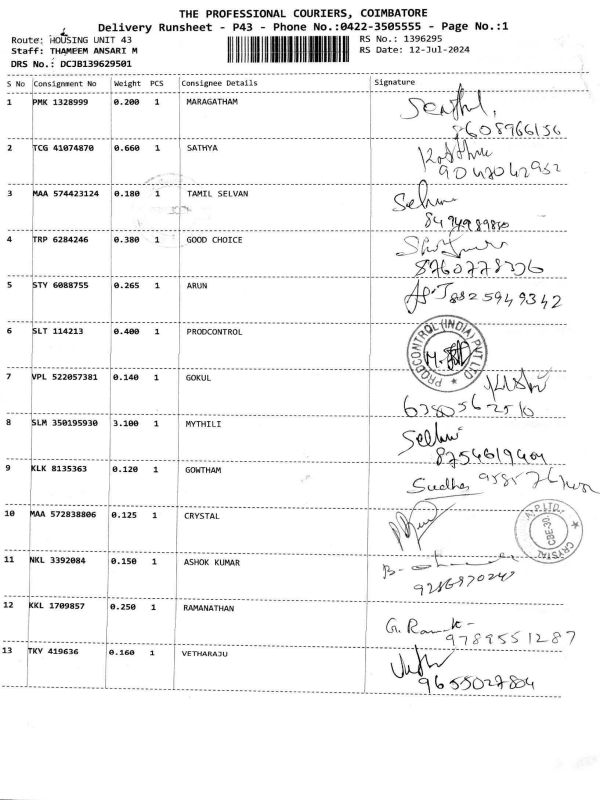 THE PROFESSIONAL COURIERS, COIMBATORE
Delivery Runsheet - P43 - Phone No.:0422-3505555 - Page No.:1
Route: HOUSING UNIT 43 RS No.: 1396295
Staff: THAMEEM ANSARI M RS Date: 12-Jul-2024
DRS No.: DCJB139629501
S No Consignment No Weight PCS Consignee Details Signature
1 PMK 1328999 0.200 1 MARAGATHAM
8608966156
2 TCG 41074870 0.660 1 SATHYA
9047042952
3 MAA 574423124 0.180 1 TAMIL SELVAN
4 TRP 6284246 0.380 1 GOOD CHOICE
8760778336
5 STY 6088755 0.265 1 ARUN
8825949342
6 SLT 114213 0.400 1 PRODCONTROL
PRODCONTROL (INDIA) PVT LTD
7 VPL 522057381 0.140 1 GOKUL
8 SLM 350195930 3.100 1 MYTHILI
9 KLK 8135363 0.120 1 GOWTHAM
Sudha
10 MAA 572838806 0.125 1 CRYSTAL
CRYSTAL
CBE-30.
11 NKL 3392084 0.150 1 ASHOK KUMAR
12 KKL 1709857 0.250 1 RAMANATHAN
9789551287
13 TKY 419636 0.160 1 VETHARAJU
9655027804